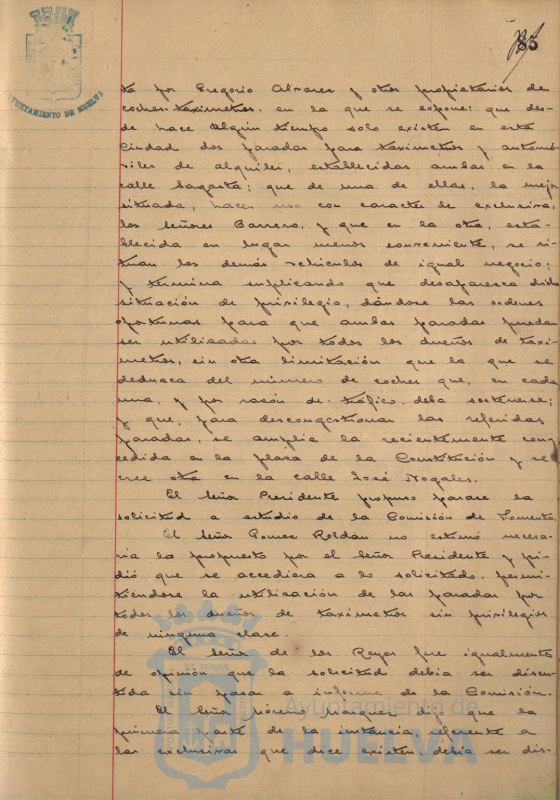 85
AYUNTAMIENTO DE HUELVA
ta por Gregorio Alvarez y otros propietarios de
coches-taxímetros, en la que se expone: que des-
de hace algún tiempo solo existen en esta
Ciudad dos paradas para taxímetros y automó-
viles de alquiler, establecidas ambas en la
calle Sagasta; que de una de ellas, la mejor
situada, hacen uso con caracter de exclusiva,
los señores Barrero, y que en la otra, esta-
blecida en lugar menos conveniente, se si-
tuan los demás vehículos de igual negocio;
y termina suplicando que desaparezca dicha
situación de privilegio, dándose las ordenes
oportunas para que ambas paradas puedan
ser utilizadas por todos los dueños de taxí-
metros, sin otra limitación que la que se
deduzca del número de coches que, en cada
una, y por razón de tráfico, deba sostenerse;
y que, para descongestionar las referidas
paradas, se amplie la recientemente con-
cedida en la plaza de la Constitución y se
cree otra en la calle José Nogales.
El señor Presidente propuso pasase la
solicitud a estudio de la Comisión de Fomento
El señor Gomez Roldán no estimó necesa-
ria la propuesto por el señor Presidente y pi-
dió que se accediera a lo solicitado, permi-
tiéndose la utilización de las paradas por
todos los dueños de taxímetros sin privilegios
de ninguna clase.
El señor de los Reyes fue igualmente
de opinión que la solicitud debía ser discu-
tida sin pasar a informe de la Comisión.
El señor Moreno Marquez dijo que la
primera parte de la instancia, referente a
las exclusivas que dice existen, debía ser dis-
Ayuntamiento de
HUELVA